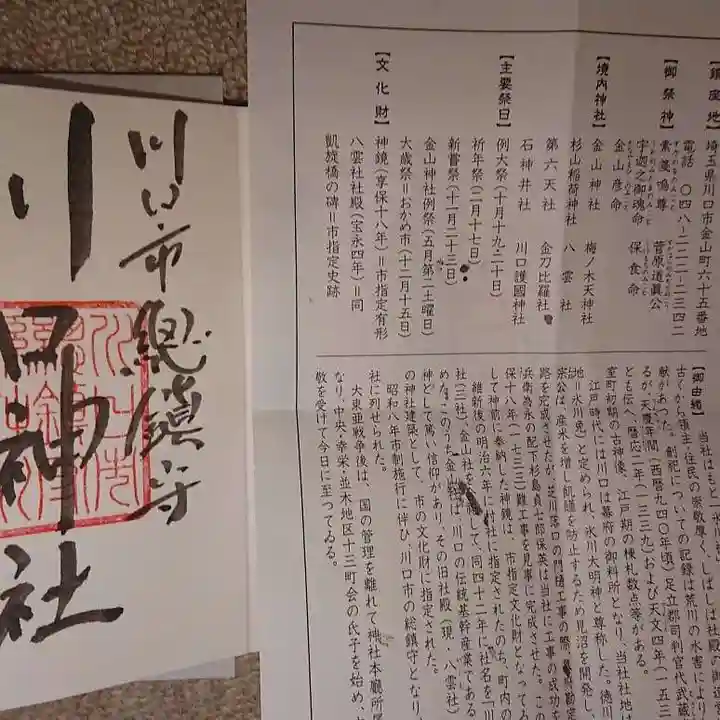 川口市総鎮守
川口神社
【鎮座地】埼玉県川口市金山町六十五番地
電話 〇四八-二二二-二三四二
【御祭神】素戔嗚尊 菅原道眞公
宇迦之御魂命 保食命
金山彦命
【境内神社】金山神社 梅ノ木天神社
杉山稲荷神社 八雲社
第六天社 金刀比羅社
石神井社 川口護國神社
【主要祭日】例大祭(十月十九・二十日)
祈年祭(二月十七日)
新嘗祭(十一月二十三日)
金山神社例祭(五月第一土曜日)
大歳祭=おかめ市(十二月十五日)
【文化財】神鏡(享保十八年)=市指定有形
八雲社社殿(宝永四年)=同
凱旋橋の碑=市指定史跡
【御由緒】
古くから領主・住民の崇敬厚く、しばしば社殿の
献があった。創祀についての記録は荒川の水害により
るが、天慶年間(西暦九四〇年頃)足立郡司判官代武蔵
とも伝へ、暦応二年(一三三九)および天文四年(一五三
室町初期の古神像、江戸期の棟札数点等がある。
江戸時代には川口は幕府の御料所となり、当社社地
地=氷川免)と定められ、氷川大明神と尊称した。徳川
宗公は、産米を増し飢饉を防止するため見沼を開発し、
路を完成させたが、芝川落口の門樋工事の際、
兵衛為永の配下杉島貞七郎保英は当社に工事の成功
保十八年(一七三三)難工事を見事に完成させた。こ
して神前に奉納した神鏡は、市指定文化財となってゐ
維新後の明治六年に村社に指定されたのち、町内の
社(三社)、金山社を して、同四十二年に社名を「川
めた。このうち金山社は、川口の伝統基幹産業である
神として篤い信仰があり、その旧社殿(現・八雲社)
の神社建築として、市の文化財に指定された。
昭和八年市制施行に伴ひ、川口市の総鎮守となり、
社に列せられた。
大東亜戦争後は、国の管理を離れて神社本廳所属
なり、中央・幸栄・並木地区十三町会の氏子を始め、
敬を受けて今日に至つてゐる。